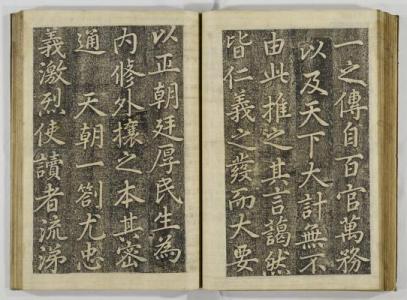 一之傳自百官萬務
以及天下大計無不
由此推之其言藹然
皆仁義之發而大要
以正朝廷厚民生為
内修外攘之本其密
通　天朝一劄尤忠
義激烈使讀者流涕